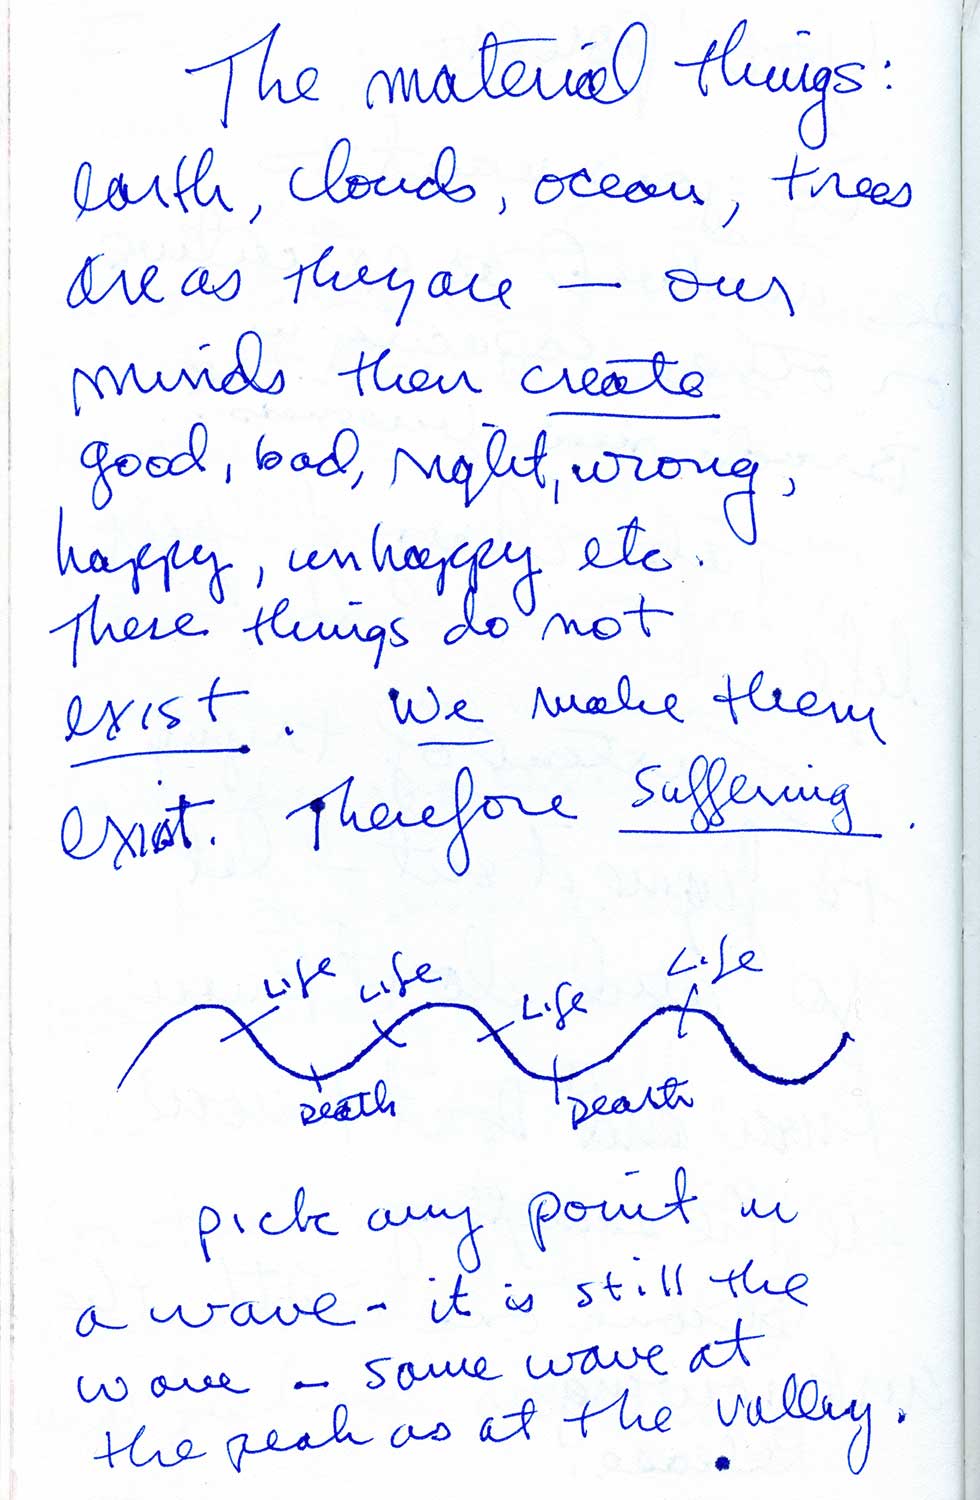 The material things:
earth, clouds, ocean, trees
are as they are — our
minds then create
good, bad, right, wrong,
happy, unhappy etc.
These things do not
exist. We make them
exist. Therefore suffering.
Life Life Life Life
Death Death
pick any point in
a wave - it is still the
wave - same wave at
the peak as at the valley.